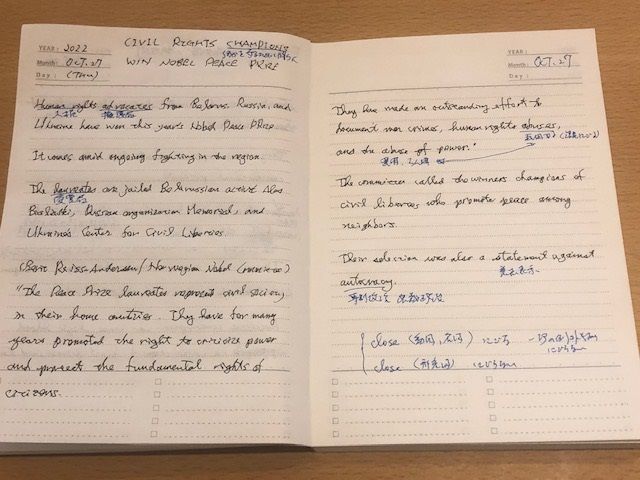 YEAR: 2022
Month: OCT. 27
Day: (Thu)
CIVIL RIGHTS CHAMPIONS
WIN NOBEL PEACE PRIZE
Human rights advocates from Belarus, Russia, and
人権 擁護者
Ukraine have won this year's Nobel Peace Prize
It comes amid ongoing fighting in the region.
The laureates are jailed Belarusian activist Ales
受賞者
Bialiatski, Russian organization Memorial, and
Ukraine's Center for Civil Liberties.
Berit Reiss-Andersen / Norwegian Nobel Committee)
"The Peace Prize laureates represent civil society
in their home countries. They have for many
years promoted the right to criticize power
and protect the fundamental rights of
citizens.
YEAR:
Month: OCT. 27
Day:
They have made an outstanding effort to
document war crimes, human rights abuses,
and the abuse of power."
The committee called the winners champions of
civil liberties who promote peace among
neighbors.
Their selection was also a statement against
autocracy.
専制政治
close (動詞, 名詞)
close (形容詞)